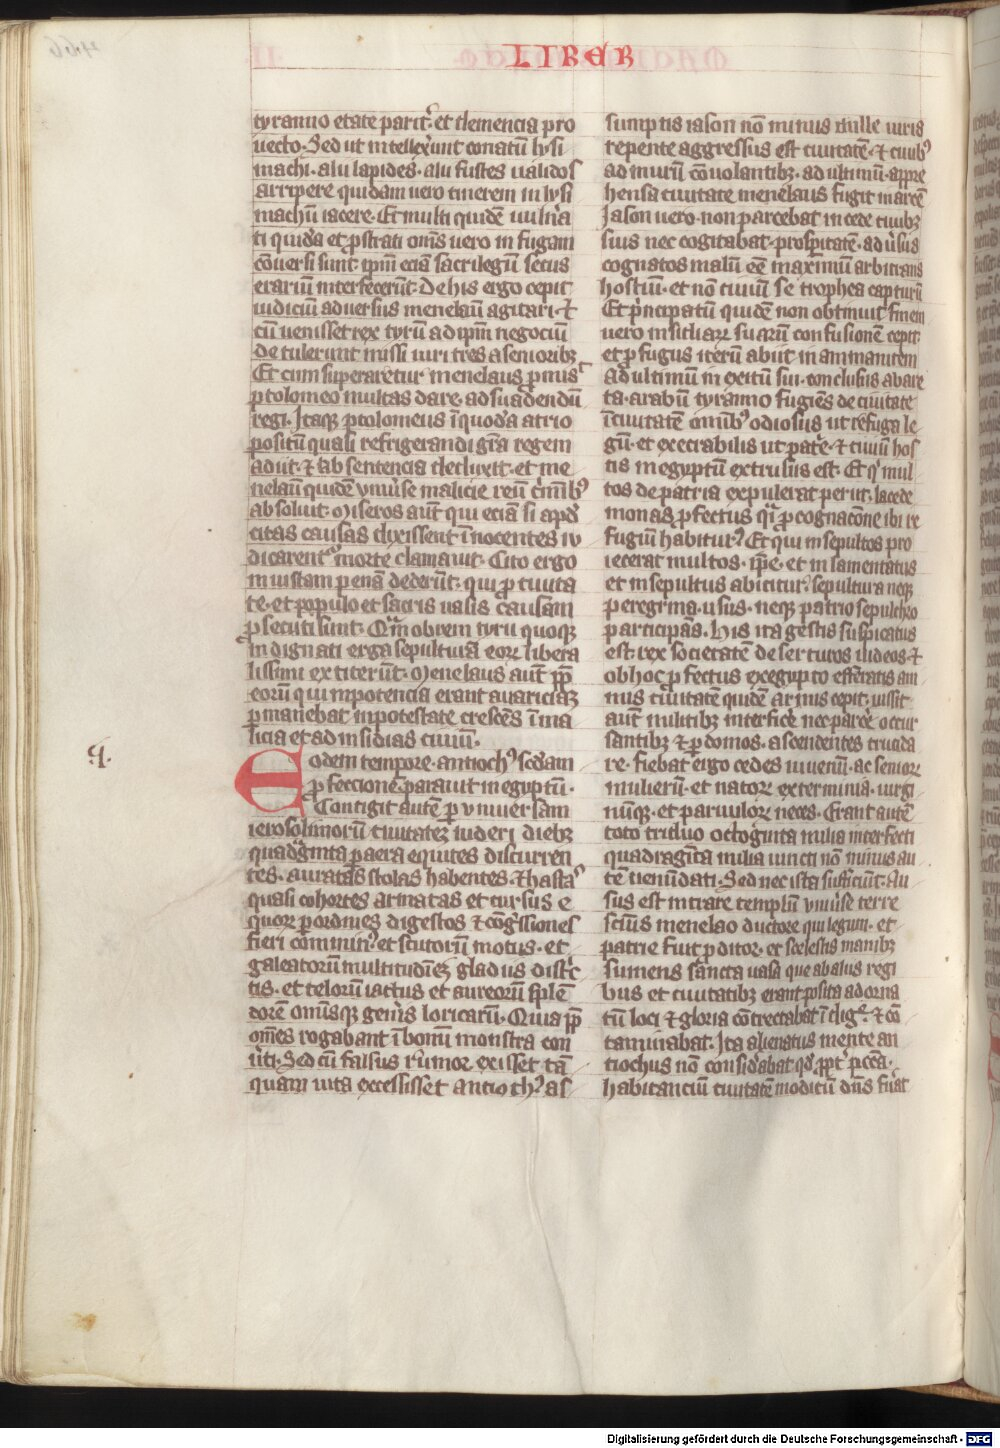 LIBER
tyranno etate parit̾. et clemencia pro
uecto. Sed ut intellex̾unt conatū lysi
machi. alii lapides. alii fustes ualidos
arripere quidam uero cinerem in lysi
machū iacere. Et multi quidē uuln̾a
ti quidā et ꝓstrati om̄s uero in fugam
cōuersi sunt. ip̄m eciā sacrilegū secus
erariū interfecerūt. De his ergo cepit
iudiciū aduersus menelaū agitari. ⁊
cū uenisset rex tyrū ad ip̄m negociū
detulerunt missi uiri tres a senioribꝫ
Et cum superaretur menelaus ꝓmisᵗ
ptolomeo multas dare. ad suadendū
regi. Itaqꝫ ptolomeus ī quodā atrio
positū quasi refrigerandi gr̄a regem
adiit. ⁊ ab sentencia deduxit. et me
nelaū quidē vniu̾se malicie reū c̾minibꝰ
absoluit. Miseros aūt qui eciā si apd̾
citas causas dixissent īnocentes iu
dicarentᵘʳ morte dampnauit. Cito ergo
iniustam penā dederūt. qui ꝓ ciuita
te. et populo et sacris uasis causam
ꝓsecuti sunt. Qm̄ obrem tyrii quoqꝫ
indignati erga sepulturā eoꝝ libera
lissimi extiterūt. Menelaus aūt ꝓpt̄
eorū qui in potencia erant auariciaꝫ
ꝑmanebat in potestate cresces̄ ī ma
licia et ad insidias ciuiū.
q.
Eodem tempore. antiochꝰ sc̄dam
ꝓfeccionē parauit in egyptū.
Contigit autē ꝑ vniuersam
ierosolimorū ciuitateꝫ uideri diebꝫ
quadg̾inta ꝑ aera equites discurren
tes. auratas stolas habentes. ⁊ hastaˢ
quasi cohortes armatas et cursus e
quoꝝ ꝑ ordines digestos ⁊ cōg̾ssiones
fieri comminꝰ. et scutorū motus. et
galeatorū multitudīeꝫ gladiis dist̾c
tis. et telorū iactus et aureorū splē
dorē omīsqꝫ gen̾is loricarū. Quapp̄
om̄es rogabant ī bonū monstra con
uti. Sed cū falsus rumor exisset tā
quam uita excessisset antiochꝰ as
sumptis iason nō minus mille uiris
repente aggressus est ciuitatē. ⁊ ciuibꝰ
ad murū cōuolantibꝫ. ad ultimū. appre
hensa ciuitate menelaus fugit in arcē
Jason uero. non parcebat in cede ciuibꝫ
suis nec cogitabat. prosꝑitatē. adu̾sus
cognatos malū eē maximū arbitrans
hostiū. et nō ciuiū se trophea capturū
Et p̾ncipatū quidē non obtinuit. finem
uero insidiaꝝ suarū confusionē cepit.
et ꝓfugus iterū abiit in ammanitem
Ad ultimū in exitū sui. conclusus ab are
ta. arabū tyranno fugiēs de ciuitate
ī ciuitatē omībꝰ odiosus ut refuga le
gū. et execrabilis ut pat̾e. ⁊ ciuiū hos
tis in egyptū extrusus est. Et q̾ mul
tos de patria expulerat periit. lacede
monas ꝓfectus q̾i ꝓ cognacōne ibi re
fugiū habiturꝰ. Et qui insepultos pro
iecerat multos. ip̄e. et inlamentatus
et insepultus abicitur. sepultura neqꝫ
peregrina. usus. neqꝫ patrio sepulchro
participās. His ita gestis suspicatus
est. rex societatē deserturos iudeos. ⁊
ob hoc ꝓfectus ex egypto efferatis ani
mus ciuitatē quidē armis cepit. iussit
aūt militibꝫ interfic̾e nec parc̾e occur
santibꝫ ⁊ ꝑ domos. ascendentes trucida
re. fiebat ergo cedes iuuenū. ac senioꝝ
mulierū. et natoꝝ exterminia. uirgi
nūqꝫ. et paruuloꝝ neces. Erant autē
toto triduo octoginta milia interfecti
quadragīta milia iuncti nō minus au
tē uenūdati. Sed nec ista sufficiūt. Au
sus est intrare templū vniu̾se terre
scīus menelao ductore qui legum. et
patrie fuit ꝓditor. et scelestis manibꝫ
sumens sancta uasa que ab alus regi
bus et ciuitatibꝫ erant posita ad orna
tū loci ⁊ gloria cōtrectabat īdigᵉ. ⁊ cō
taminabat. Ita alienatus mente an
tiochus nō considābat qd̾ ꝓpt̾ pccā
habitanciū ciuitatē modicū dn̄s fu̾at
Digitalisierung gefördert durch die Deutsche Forschungsgemeinschaft - DFG